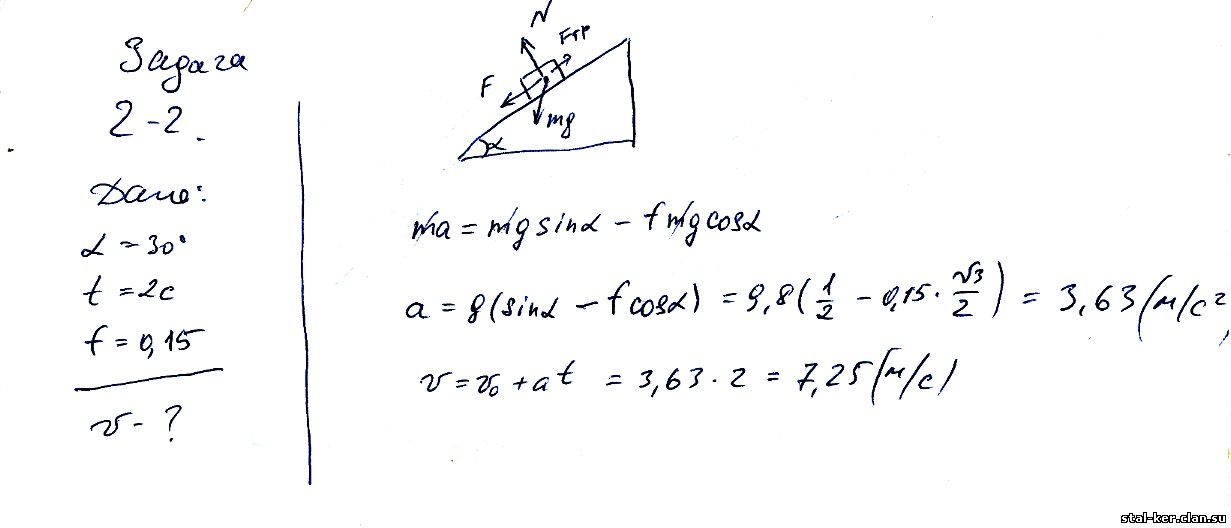 Задача
2-2.
Дано:
α = 30°
t = 2c
f = 0,15
v - ?
N
Fтр
F
mg
α
ma = mg sinα - f mg cosα
a = g(sinα - f cosα) = 9,8(1/2 - 0,15 · √3/2) = 3,63 (м/с²)
v = v₀ + at = 3,63 · 2 = 7,25 (м/с)
stal-ker.clan.su